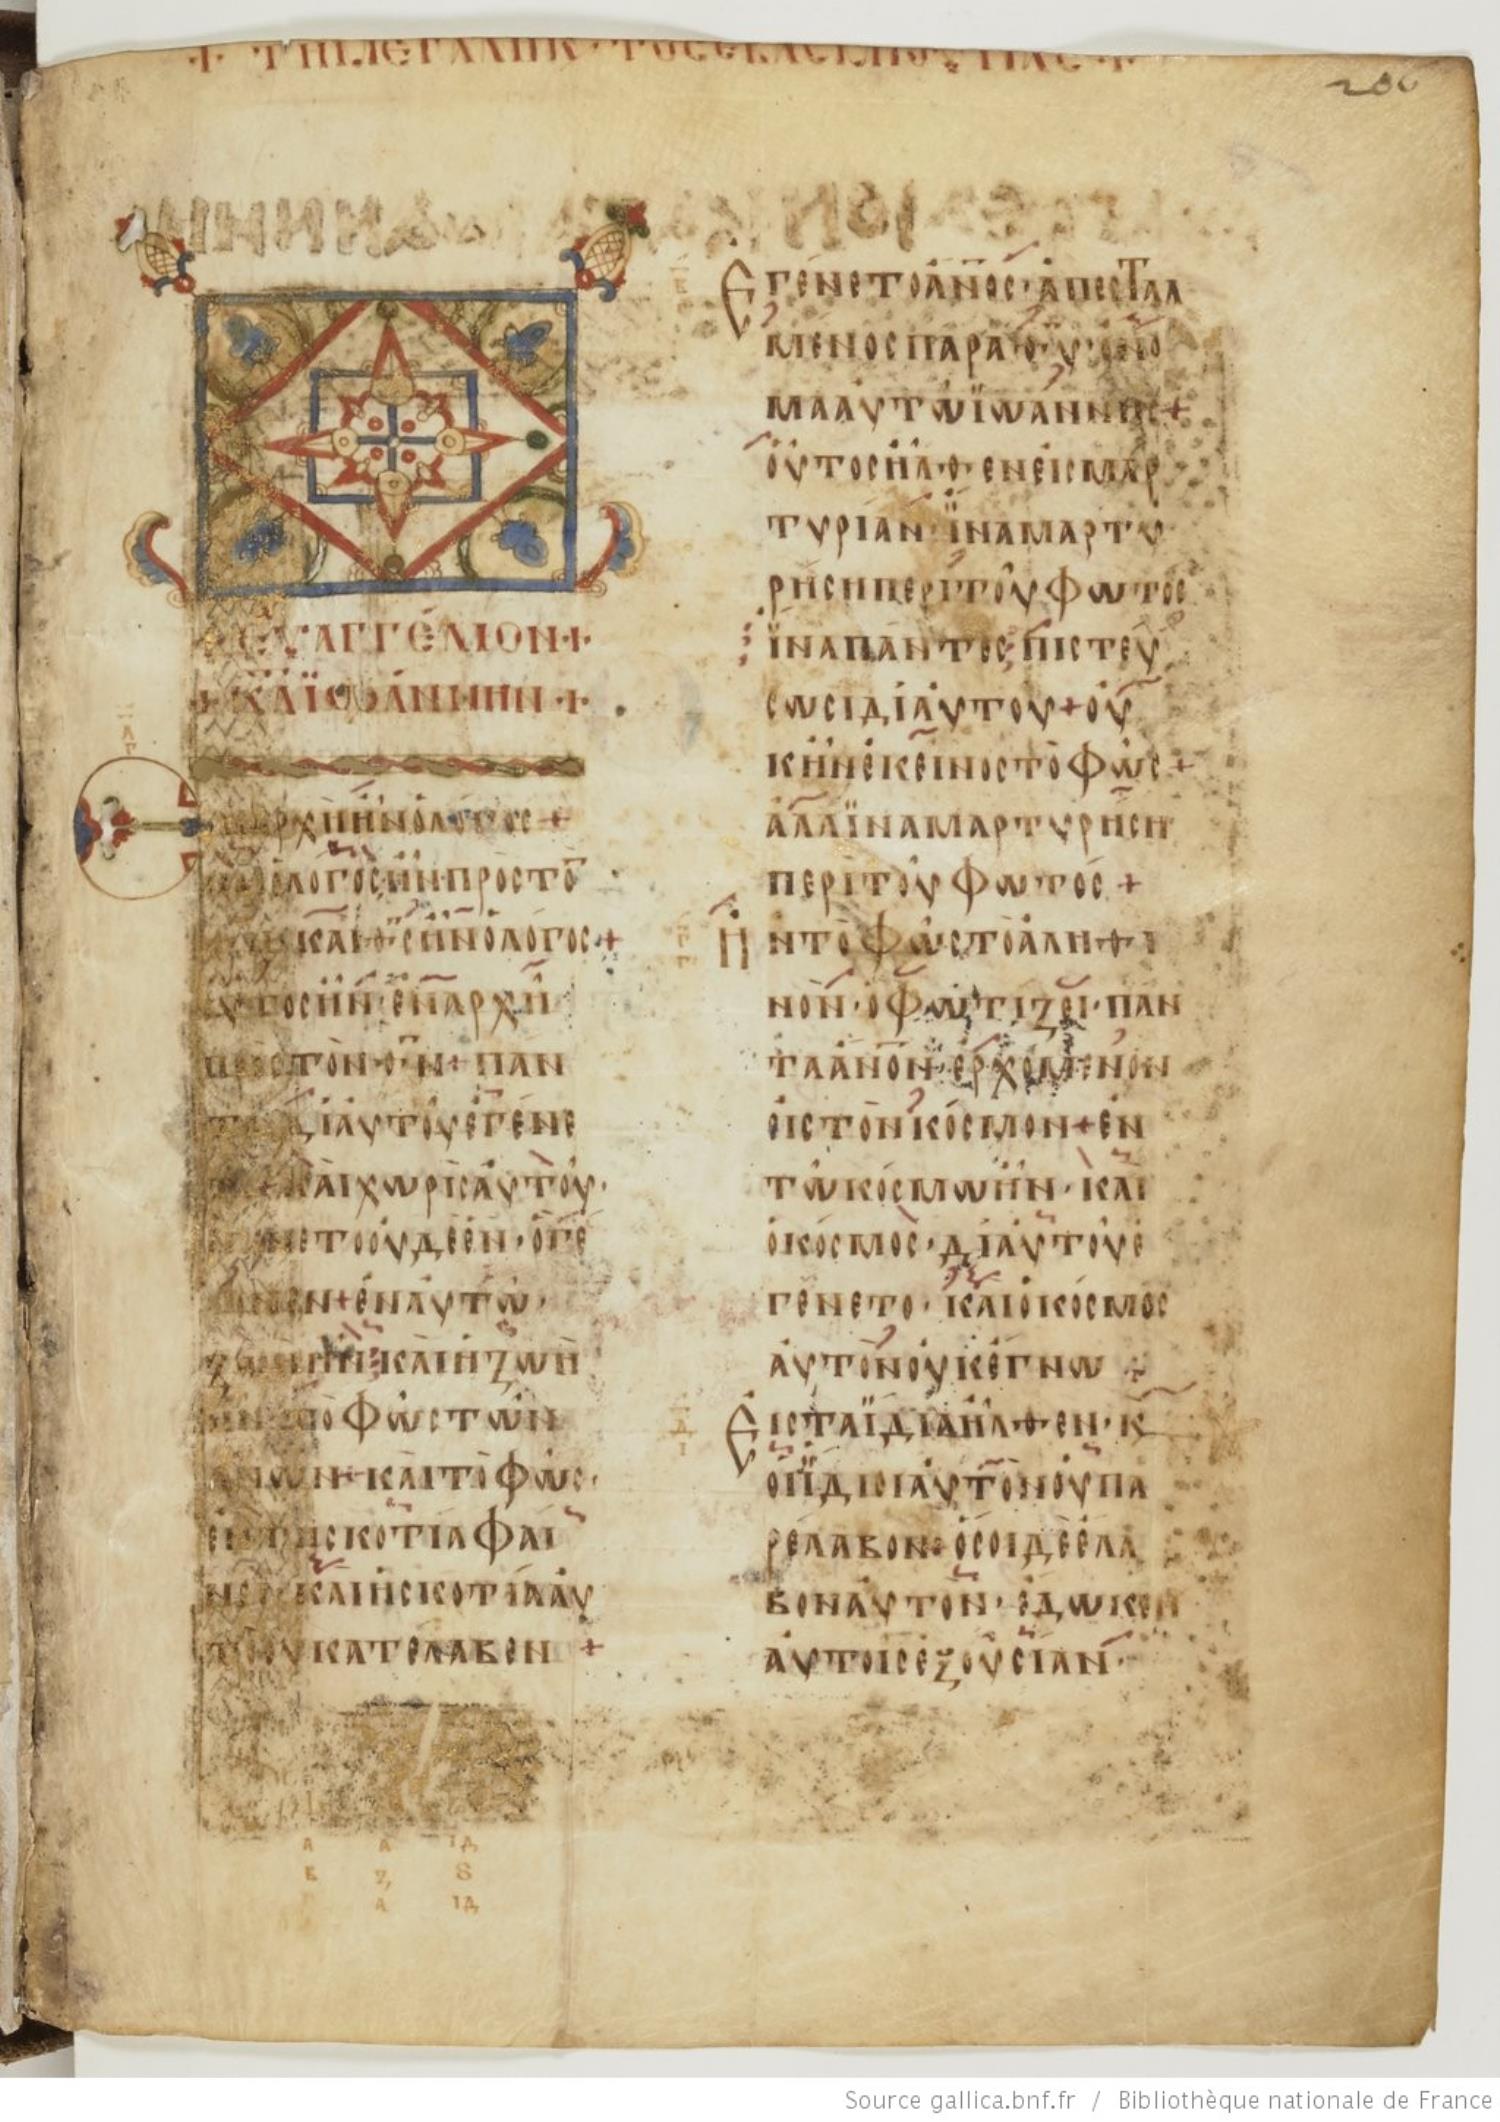 + ΤΗ ΜΕΓΑΛΗ Κ
206
ΕΥΑΓΓΕΛΙΟΝ
ΚΑΤΑ ΪΩΑΝΝΗΝ
ΑΡΧΗ ΗΝ Ο ΛΟΓΟΣ +
ΛΟΓΟΣ ΗΝ ΠΡΟΣ ΤΟ
ΚΑΙ ΘΣ ΗΝ Ο ΛΟΓΟΣ +
ΟΥΤΟΣ ΗΝ ΕΝ ΑΡΧΗ
ΠΡΟΣ ΤΟΝ ΘΝ + ΠΑΝ
ΤΑ ΔΙ ΑΥΤΟΥ ΕΓΕΝΕ
ΚΑΙ ΧΩΡΙΣ ΑΥΤΟΥ ·
ΕΓΕΝΕΤΟ ΟΥΔΕ ΕΝ · Ο ΓΕ
ΓΟΝΕΝ + ΕΝ ΑΥΤΩ ·
ΖΩΗ ΗΝ · ΚΑΙ Η ΖΩΗ
ΗΝ ΤΟ ΦΩΣ ΤΩΝ
ΑΝΩΝ · ΚΑΙ ΤΟ ΦΩΣ ·
ΕΝ ΤΗ ΣΚΟΤΙΑ ΦΑΙ
ΝΕΙ · ΚΑΙ Η ΣΚΟΤΙΑ ΑΥ
ΤΟ ΟΥ ΚΑΤΕΛΑΒΕΝ +
Α Α ΙΔ
Β Ζ Η
Α ΙΔ
ΕΓΕΝΕΤΟ ΑΝΟΣ · ΑΠΕΣΤΑΛ
ΜΕΝΟΣ ΠΑΡΑ ΘΥ · ΟΝΟ
ΜΑ ΑΥΤΩ ΪΩΑΝΝΗΣ +
ΟΥΤΟΣ ΗΛΘΕΝ ΕΙΣ ΜΑΡ
ΤΥΡΙΑΝ · ΪΝΑ ΜΑΡΤΥ
ΡΗΣΗ ΠΕΡΙ ΤΟΥ ΦΩΤΟΣ
ΪΝΑ ΠΑΝΤΕΣ ΠΙΣΤΕΥ
ΣΩΣΙ ΔΙ ΑΥΤΟΥ + ΟΥ
Κ ΗΝ ΕΚΕΙΝΟΣ ΤΟ ΦΩΣ +
ΑΛΛ ΪΝΑ ΜΑΡΤΥΡΗΣΗ
ΠΕΡΙ ΤΟΥ ΦΩΤΟΣ +
ΗΝ ΤΟ ΦΩΣ ΤΟ ΑΛΗΘΙ
ΝΟΝ · Ο ΦΩΤΙΖΕΙ · ΠΑΝ
ΤΑ ΑΝΟΝ · ΕΡΧΟΜΕΝΟΝ
ΕΙΣ ΤΟΝ ΚΟΣΜΟΝ + ΕΝ
ΤΩ ΚΟΣΜΩ ΗΝ · ΚΑΙ
Ο ΚΟΣΜΟΣ · ΔΙ ΑΥΤΟΥ Ε
ΓΕΝΕΤΟ · ΚΑΙ Ο ΚΟΣΜΟΣ
ΑΥΤΟΝ ΟΥΚ ΕΓΝΩ +
ΕΙΣ ΤΑ ΪΔΙΑ ΗΛΘΕΝ · Κ
ΟΙ ΪΔΙΟΙ ΑΥΤΟΝ ΟΥ ΠΑ
ΡΕΛΑΒΟΝ · ΟΣΟΙ ΔΕ ΕΛΑ
ΒΟΝ ΑΥΤΟΝ · ΕΔΩΚΕΝ
ΑΥΤΟΙΣ ΕΞΟΥΣΙΑΝ ·
Source gallica.bnf.fr / Bibliothèque nationale de France